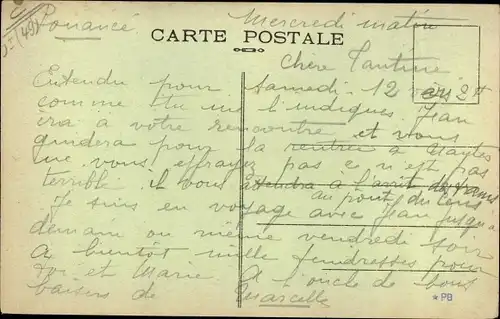 Pouancé. Mercredi matin
(49)
CARTE POSTALE
Chère Tantine
Entendu pour Samedi 12 vers 2H
comme tu me l'indiques. Jean
ira à votre rencontre et vous
guidera pour la rentrée à Nantes
ne vous effrayez pas ce n'est pas
terrible il vous attendra à l'arrêt du trams
au pont du Cens
Je suis en voyage avec Jean jusqu'à
demain ou même vendredi soir
A bientôt mille tendresses pour
toi et Marie A l'oncle de bons
baisers de Marcelle
*PB